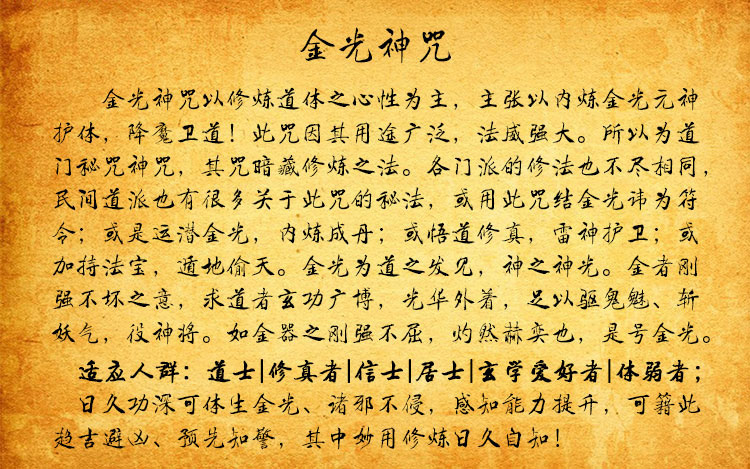 金光神咒
金光神咒以修炼道体之心性为主，主张以内炼金光元神
护体，降魔卫道！此咒因其用途广泛，法威强大。所以为道
门秘咒神咒，其咒暗藏修炼之法。各门派的修法也不尽相同，
民间道派也有很多关于此咒的秘法，或用此咒结金光讳为符
令；或是运潜金光，内炼成丹；或悟道修真，雷神护卫；或
加持法宝，遁地偷天。金光为道之发见，神之神光。金者刚
强不坏之意，求道者玄功广博，光华外着，足以驱鬼魅、斩
妖气，役神将。如金器之刚强不屈，灼然赫奕也，是号金光。
适应人群：道士|修真者|信士|居士|玄学爱好者|体弱者；
日久功深可体生金光、诸邪不侵，感知能力提升，可籍此
趋吉避凶、预先知警，其中妙用修炼日久自知！